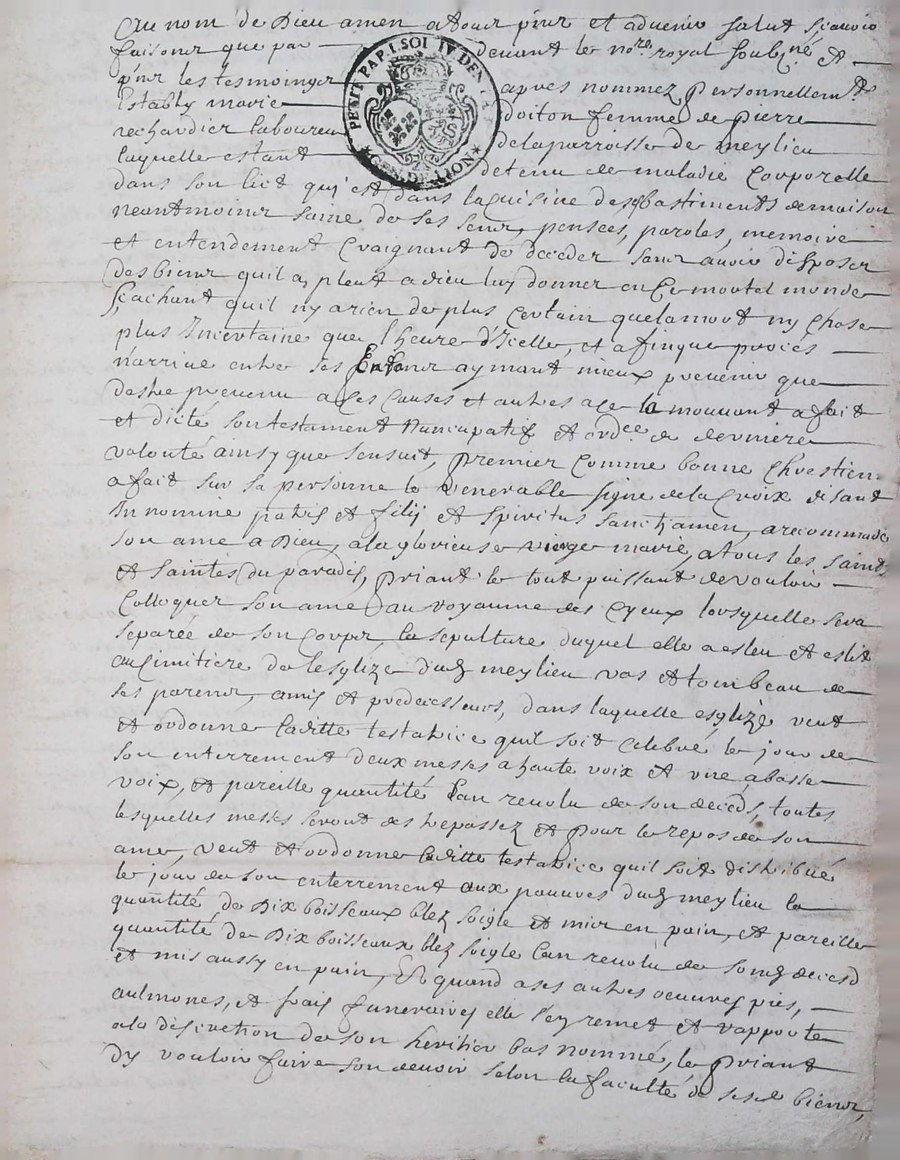 Au nom de Dieu amen a tous p̃ns et advenir salut scavoir
faisons que par devant le no.re royal soubz.né et
p̃ns les tesmoings apres nommez personnellem.t
Establÿ marie doiton femme de pierre
rechardier laboureur de la parroisse de meylieu
laquelle estant detenu de maladie Corporelle
dans son lict qui est dans la cuisine des bastiments de maison
neantmoins saine de ses sens, pensées, paroles, memoire
et entendement Craignant de deceder sans avoir disposer
des biens quil a pleut a dieu luy donner en Ce mortel monde
Scachant quil ny a rien de plus Certain que la mort ny chose
plus Incertaine que l'heure d'Icelle, et afin que procés
narrive entre ses Enfans aymant mieux prevenir que
destre prevenu a Ces Causes et autres a ce la mouvant a fait
et dicté son testament Nuncupatif et ord.ce de derniere
volonté ainsy que sensuit, premier comme bonne chrestien.
a fait sur sa personne le Venerable signe de la Croix disant
In nomine patris et filij et spiritus sancti amen, a recommandé
son ame a Dieu, a la glorieuse vierge marie, a tous les saints
et saintes du paradis, priant le tout puissant de vouloir
Colloquer son ame au royaume des Cyeux lorsquelle sera
separée de son Corps, la sepulture duquel elle a esleu et eslit
au Cimitiere de lesglize dud meylieu vas et tombeau de
ses parens, amis et predecesseurs, dans laquelle esglize veut
et ordonne laditte testatrice quil soit Celebré le jour de
son enterrement deux messes a haute voix et une a basse
voix, et pareille quantité lan revolu de son deceds, toutes
lesquelles messes seront des trepassez et pour le repos de son
ame, veut et ordonne laditte testatrice quil soit distribué
le jour de son enterrement aux pauvres dud meylieu la
quantité de Dix boisseaux blez soigle et mis en pain, et pareille
quantité de Dix boisseaux blez soigle lan revolu de sond deceds
et mis aussy en pain, Et quand a ses autres oeuvres pies,
aulmones, et frais funeraires elle sey remet et rapporte
a la discretion de son heritier bas nommé, le priant
dy vouloir faire son devoir selon la faculté de sesd biens,
PETIT PAP. 1. SOL IV DEN
GEN. LION